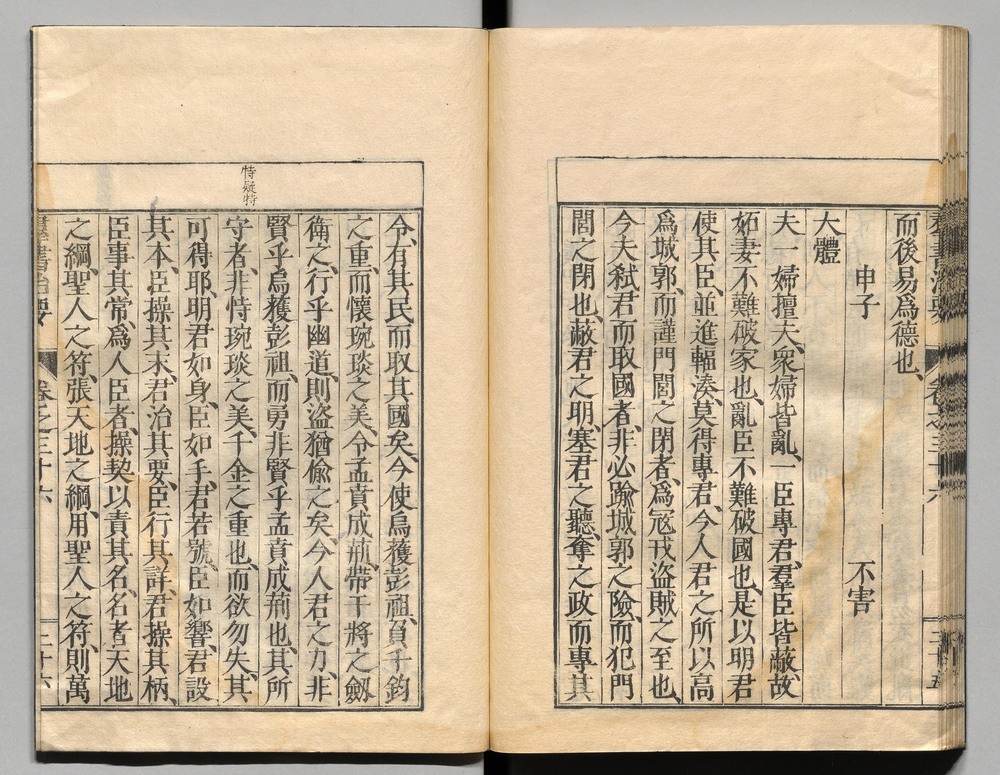 羣書治要 卷之三十六 三十五
而後易爲德也、
申子 不害
大體
夫一婦擅夫、衆婦皆亂、一臣專君、羣臣皆蔽、故
妬妻不難破家也、亂臣不難破國也、是以明君
使其臣、並進輻湊、莫得專君、今人君之所以高
爲城郭、而謹門閭之閉者、爲寇戎盜賊之至也、
今夫弑君而取國者、非必踰城郭之險、而犯門
閭之閉也、蔽君之明、塞君之聽、奪之政而專其
令、有其民而取其國矣、今使烏獲彭祖、負千鈞
之重、而懷琬琰之美、令孟賁成荊、帶干將之劒
衛之、行乎幽道、則盜猶偸之矣、今人君之力、非
賢乎烏獲彭祖、而勇非賢乎孟賁成荊也、其所
守者、非恃琬琰之美、千金之重也、而欲勿失、其
恃疑特
可得耶、明君如身、臣如手、君若號、臣如響、君設
其本、臣操其末、君治其要、臣行其詳、君操其柄、
臣事其常、爲人臣者、操契以責其名、名者天地
之綱、聖人之符、張天地之綱、用聖人之符、則萬
羣書治要 卷之三十六 三十六